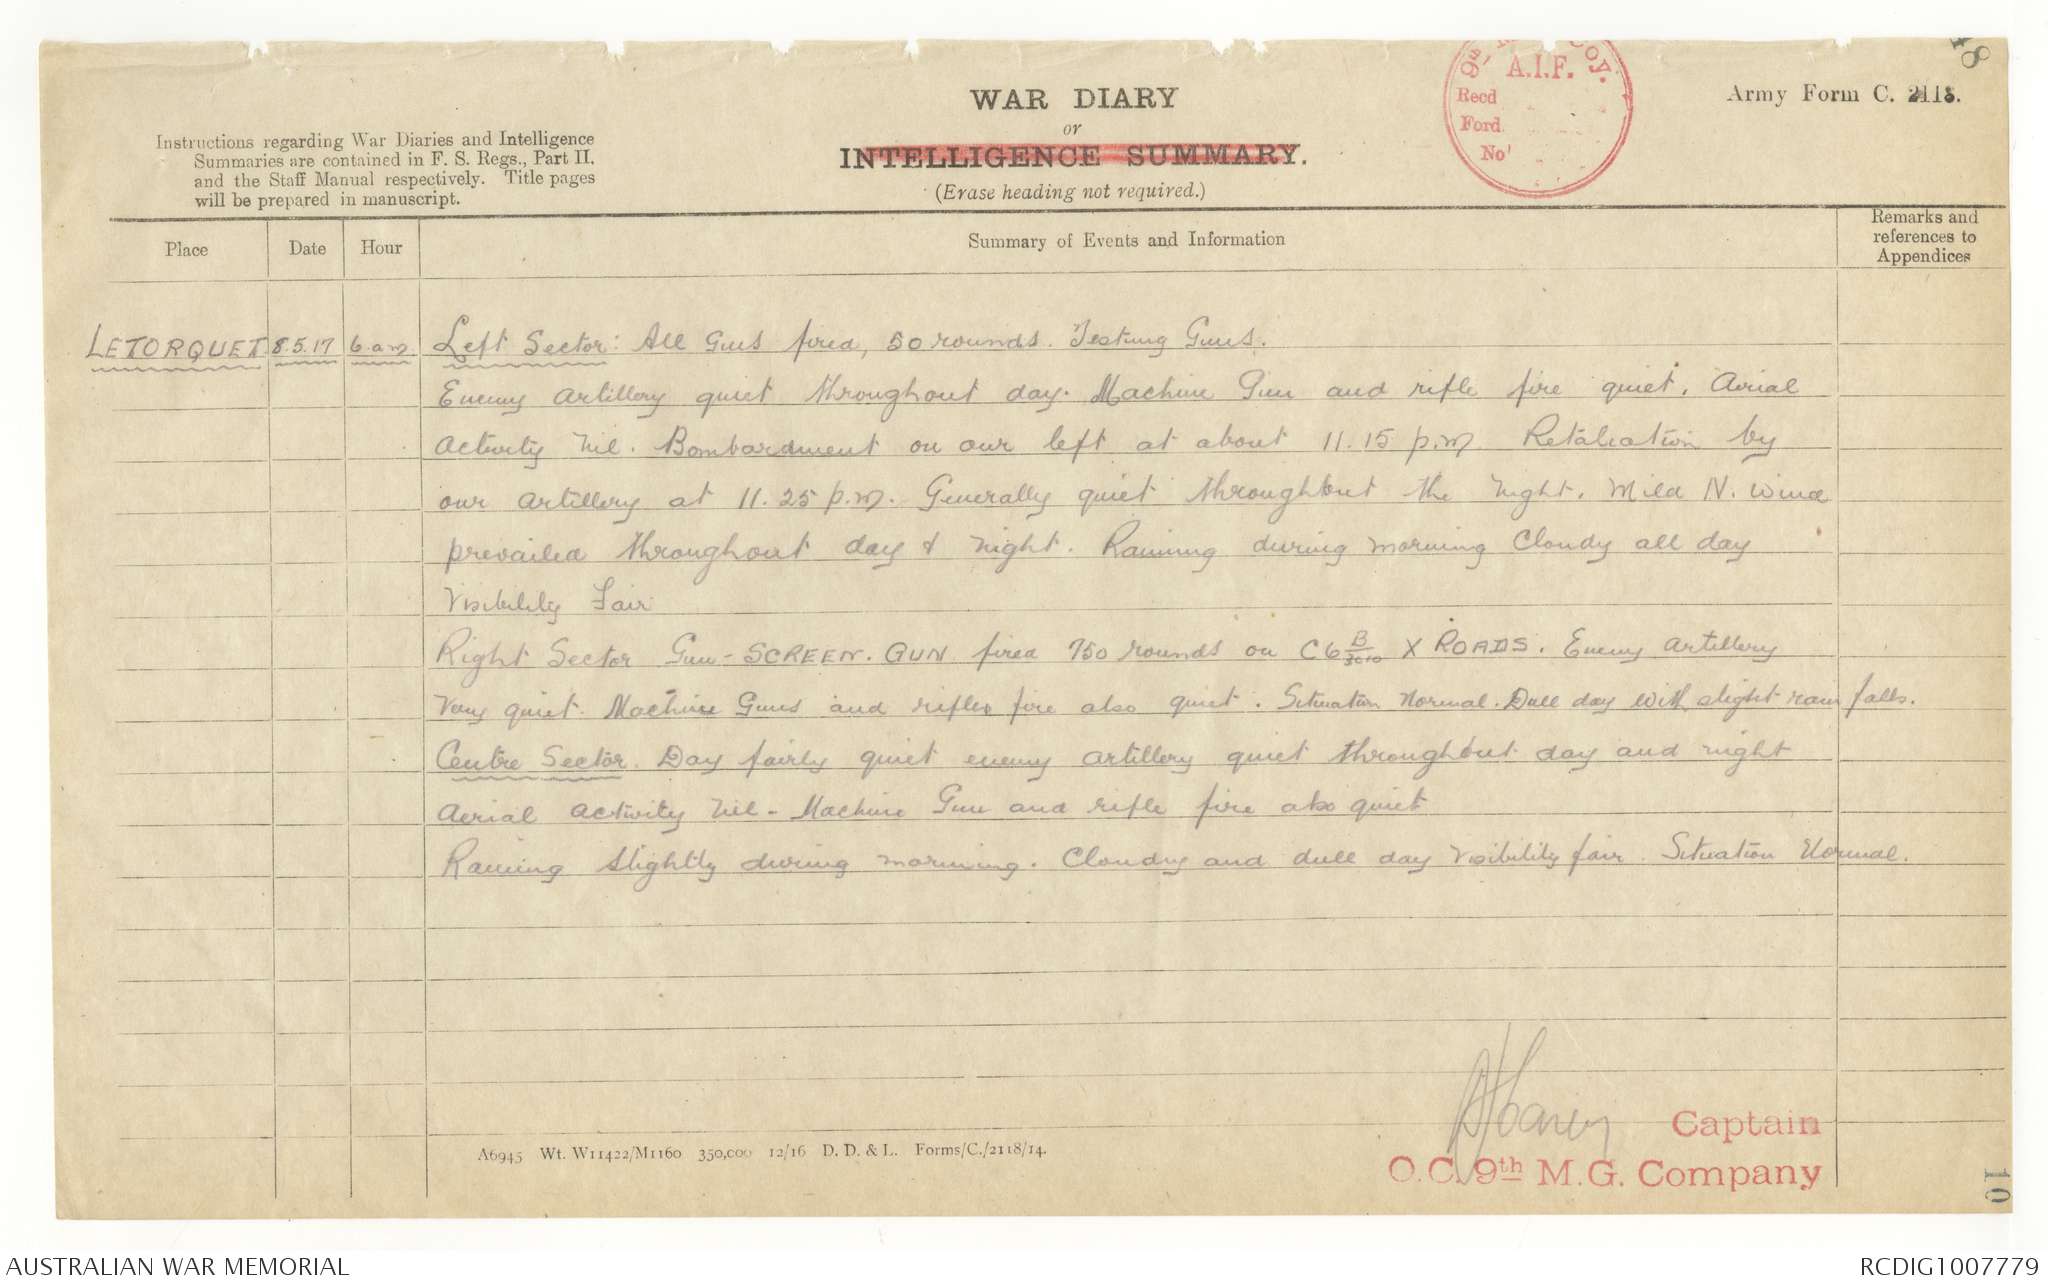 48
9th M.G. Coy.
A.I.F.
Recd
Ford
No
Army Form C. 2118.
WAR DIARY
or
INTELLIGENCE SUMMARY.
(Erase heading not required.)
Instructions regarding War Diaries and Intelligence
Summaries are contained in F. S. Regs., Part II.
and the Staff Manual respectively. Title pages
will be prepared in manuscript.
Place Date Hour Summary of Events and Information Remarks and references to Appendices
LE TORQUET 8.5.17 6.a.m. Left Sector: All Guns fired, 50 rounds. Testing Guns.
Enemy artillery quiet throughout day. Machine Gun and rifle fire quiet. Aerial
activity Nil. Bombardment on our left at about 11.15 p.m. Retaliation by
our artillery at 11.25 p.m. Generally quiet throughout the night. Mild N. Wind
prevailed throughout day & night. Raining during morning Cloudy all day
Visibility Fair
Right Sector Gun - SCREEN. GUN fired 750 rounds on C6 B/3010 X ROADS. Enemy artillery
Very quiet. Machine Guns and rifles fire also quiet. Situation Normal. Dull day with slight rain falls.
Centre Sector. Day fairly quiet enemy artillery quiet throughout day and night
Aerial activity Nil - Machine Gun and rifle fire also quiet
Raining slightly during morning. Cloudy and dull day visibility fair. Situation Normal.
Captain
O.C. 9th M.G. Company
A6945 Wt. W11422/M1160 350,000 12/16 D. D. & L. Forms/C./2118/14.
10
AUSTRALIAN WAR MEMORIAL
RCDIG1007779